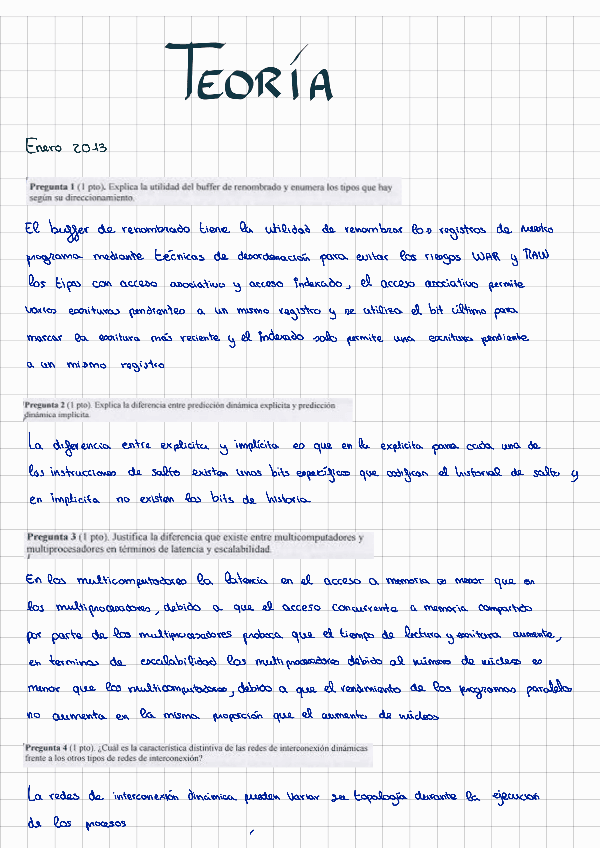 TEORÍA
Enero 2013
Pregunta 1 (1 pto). Explica la utilidad del buffer de renombrado y enumera los tipos que hay
según su direccionamiento.
El buffer de renombrado tiene la utilidad de renombrar los registros de nuestro
programa mediante técnicas de desordenación para evitar los riesgos WAR y RAW
los tipos con acceso asociativo y acceso indexado, el acceso asociativo permite
varias escrituras pendientes a un mismo registro y se utiliza el bit último para
marcar la escritura más reciente y el indexado solo permite una escritura pendiente
a un mismo registro
Pregunta 2 (1 pto). Explica la diferencia entre predicción dinámica explícita y predicción
dinámica implícita.
La diferencia entre explicita y implícita es que en la explicita para cada una de
las instrucciones de salto existen unos bits específicos que codifican el historial de salto y
en implicita no existen los bits de historia
Pregunta 3 (1 pto). Justifica la diferencia que existe entre multicomputadores y
multiprocesadores en términos de latencia y escalabilidad.
En los multicomputadores la latencia en el acceso a memoria es menor que en
los multiprocesadores, debido a que el acceso concurrente a memoria compartida
por parte de los multiprocesadores provoca que el tiempo de lectura y escritura aumente,
en terminos de escalabilidad los multiprocesadores debido al número de núcleos es
menor que los multicomputadores, debido a que el rendimiento de los programas paralelos
no aumenta en la misma proporción que el aumento de núcleos
Pregunta 4 (1 pto). ¿Cuál es la característica distintiva de las redes de interconexión dinámicas
frente a los otros tipos de redes de interconexión?
La redes de interconexión dinámica pueden variar su topología durante la ejecucion
de los procesos